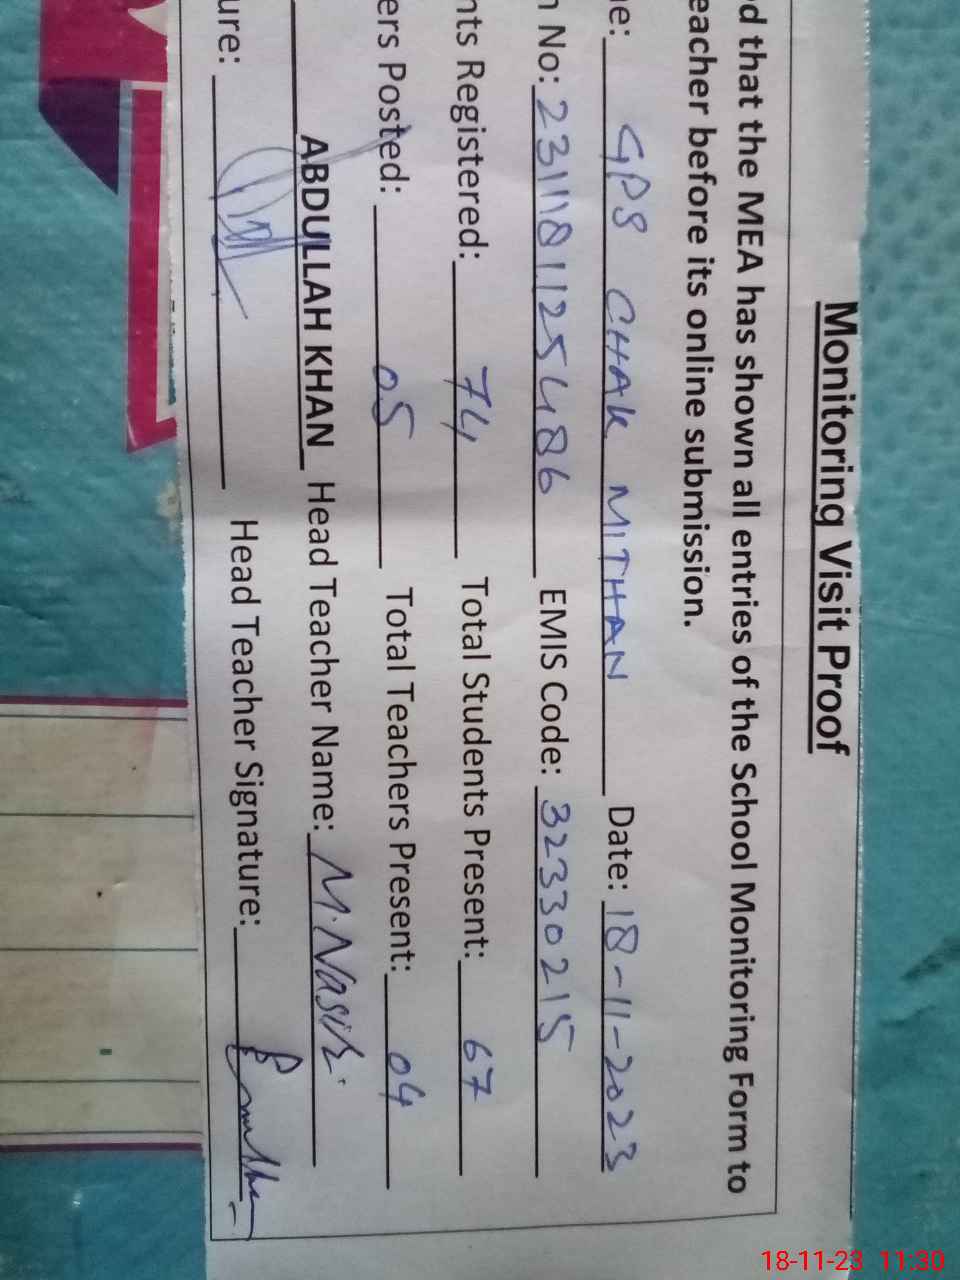 Monitoring Visit Proof
d that the MEA has shown all entries of the School Monitoring Form to
eacher before its online submission.
e: GPS CHAK MITHAN Date: 18-11-2023
n No: 231118112548 6 EMIS Code: 32330215
nts Registered: 74 Total Students Present: 67
ers Posted: 05 Total Teachers Present: 04
ABDULLAH KHAN Head Teacher Name: M. Nasir.
ure: Head Teacher Signature:
18-11-23 11:30